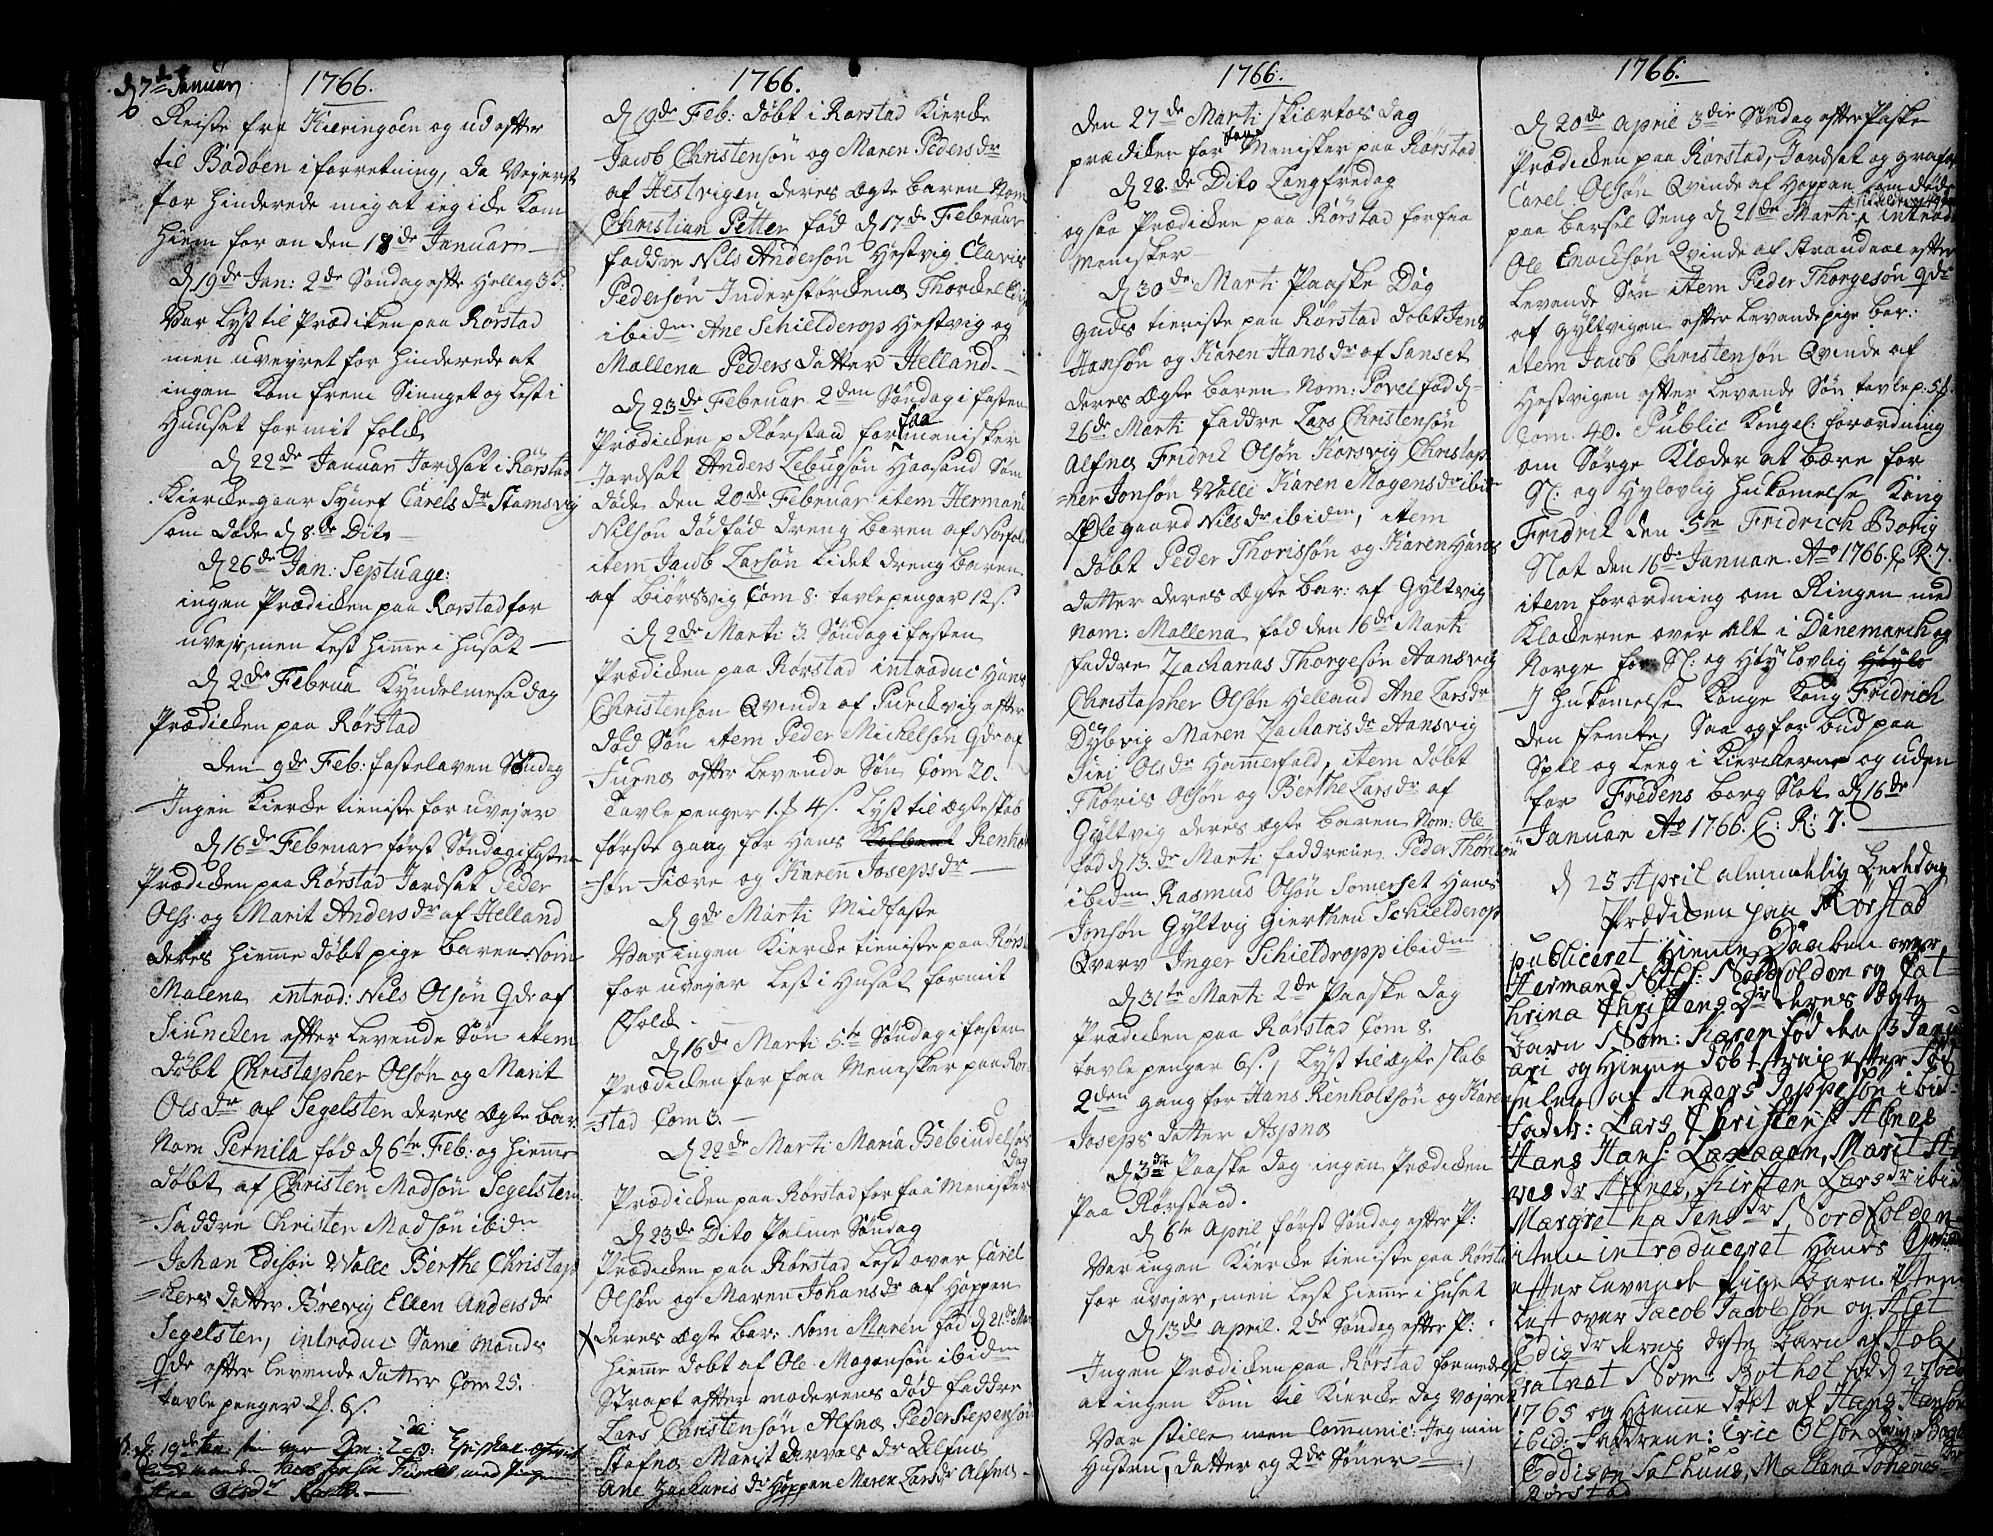 d 7de Januar 1766.
Reiste fra Kieringøen og ud efter
til Bodøen i forretning, da Vejeret
for hinderede mig at ieg icke Kom
hiem for an den 18de Januar
d 19de Jan: 2de Søndag efter Hellig 3 K.
Var Lyst til Prædiken paa Rørstad
men uveyret for hinderede at
ingen Kom frem Siunget og Lest i
Huuset for mit folck
d 22de Januar Jordsat i Rørstad
Kierckegaar Synef Carels dr Stamsvig
som døde d 8de Dito
d 26de Jan: Septuage:
ingen Prædicken paa Rørstad for
uvejr men Lest hieme i huset
d 2de Februa Kyndelmesse dag
Prædicken paa Rørstad
den 9de Feb: fastelaven Søndag
Ingen Kiercke tieniste for uvejer
d 16de Februar først Søndag i fasten
Prædicken paa Rørstad Jordsat Peder
Ols: og Marit Anders dr af Helland
deres hieme døbt pige baren Nom
Malena introd: Nils Olsøn Qde af
Siunden efter Levende Søn item
døbt Christopher Olsøn og Marit
Ols dr af Segelsten deres Ægte bar:
Nom Pernila fød d 6te Feb: og hieme
døbt af Christen Madsøn Segelsten
Faddre Christen Madsøn ibidn
Johan Edisøn Valle Berthe Christop
=hers datter Brevig Ellen Anders dr
Segelsten, introduc Same Mands
Qde efter levende datter Com 25.
tavle penger 2 6 s.
1766.
d 19de Feb: døbt i Rørstad Kiercke
Jacob Christensøn og Maren Peders dr
af Hestvigen deres Ægte baren Nom
Christian Petter fød d 17de Februar
faddre Nils Andersøn Hestvig Clavis
Pedersøn Inderstørckenes Thorckel
ibidm Ane Schielderop Hestvig og
Mallena Peders datter Helland.
d 23de Februar 2den Søndag i fasten
Prædicken p Rørstad for faa menisker
Jordsat Anders Zebugsøn Haasand Som
døde den 20de Februar item Hermand
Nilsøn dødfød dreng baren af Norfol
item Jacob Larsøn Lidet dreng baren
af Biørsvig Com 8: tavlepenger 12 s.
d 2de Marti 3. Søndag i fasten
Prædicken paa Rørstad introduc Hans
Christensøn Qvinde af Purckvig efter
død Søn item Peder Mickelsøn Qde af
Furnes efter Levende Søn Com 20.
Tavlepenger 1. 4 s. Lyst til Ægteskab
første gang for Hans Renholt
-søn Fiære og Karen Joseps dr
d 9de Marti Midfaste
Var ingen Kiercke tieniste paa Rørst
for uvejer Lest i Huset for mit
Folck
d 16de Marti 5te Søndag i fasten
Prædicken for faa Menisker paa Rør
-stad Com 3.
d 22de Marti Maria Bebudelses
dag
Prædicken paa Rørstad for faa Menisker
d 23de Dito Palme Søndag
Prædicken paa Rørstad Lest over Carel
Olsøn og Maren Johans dr af Hoppen
deres Ægte bar: Nom Maren fød d 21de Mar
hieme døbt af Ole Mogensøn ibidm
Strapt efter moderens død faddre
Lars Christensøn Alfnes Peder Stepensøn
Stofnes Marit dr Alfnes
Ane Zacharis dr Hoppen Maren Larsdr Alfnes
1766.
Den 27de Marti Skiærtors dag
prædicken for faae Menisker paa Rørstad
d 28de Dito Langfredag
ogsaa Prædicken paa Rørstad for faa
Menisker
d 30de Marti Paaske Dag
Guds tieniste paa Rørstad døbt Jens
Hansøn og Karen Hans dr af Sanset
deres Ægte baren Nom: Povel fød d
26de Marti faddre Lars Christensøn
Alfnes Fridrik Olsøn Korsvig Christop
=her Jonsøn Valle Karen Mogens dr ibidm
Olegaard Nils dr ibidm, item
døbt Peder Thorissøn og Karen Hans
datter deres Ægte bar: af Gyltvig
nom: Mallena fød den 16de Marti
faddre Zacharias Thorgesøn Aansvig
Christopher Olsøn Helland Ane Lars dr
Dybvig Maren Zacharis dr Aansvig
Siri Ols dr Hamerfald, item døbt
Thoris Olsøn og Berthe Lars dr af
Gyltvig deres Ægte baren Nom: Ole
fød d 13de Marti faddrene Peder Thorisøn
ibidm Rasmus Olsøn Somerset Hans
Jonsøn Gyltvig Gierthru Schielderop
Qvarv Inger Schieldropp ibidm
d 31te Marti 2de Paaske dag
Prædicken paa Rørstad Com 8.
tavle penger 6 s. Lyst til Ægte skab
2den gang for Hans Renholtsøn og Karen
Joseps datter Aspnes
d 3de Paaske dag ingen Prædicken
Paa Rørstad.
d 6te April først Søndag efter P:
Var ingen Kiercke tieniste paa Rørsta
for uvejer, men Lest hieme i huset
d 13de April. 2de Søndag efter P:
Ingen Prædicken paa Rørstad formedelst
at ingen Kom til Kiercke dag vejret
Var stille men Communic: Jeg min
Hustru, datter og 2de Søner
1766.
d 20de April 3die Søndag efter Paske
Prædicken paa Rørstad, Jordsat og grafæ
Carel Olsøn Qvinde af Hoppen som døde
paa barsel Seng d 21de Marti introd
Ole Enocksøn Qvinde af Strandaae efter
Levende Søn item Peder Thorgesøn Qde
af Gyltvigen efter Levende pige bar:
item Jacob Christensøn Qvinde af
Hestvigen efter Levende Søn tavlep. 5
Com. 40. Public Kongel: forordning
om Sørge Klæder at bære for
Sl: og Hylovlig hukomelse King
Fridrik den 5te Fridrich Borig
Slot den 16de Januar Ao 1766. C R 7.
item forordning om Ringen med
Klockerne over alt i Danemarck og
Norge for Sl: og Høylovlig
I hukomelse Konge Kong Fridrich
den femte, Saa og for bud paa
Spil og Leeg i Kierckerne og uden
for Fredens borg Slot d 16de
Januar Ao 1766. C: R: 7.
d 25 April almindelig Bededag
Prædicken paa Rørstad
publiceret Hieme Daaben over
Hermand Nils: Nordfolden og Cat-
hrina Christens Dr deres ægte
barn Nom: Karen fød den 3 Janu
ari og Hieme døbt straix efter fød
selen af Anders Jeppesøn ibid.
Fadd: Lars Christens Alfnes
Hans Hans: Laxaaen, Marit
dr Alfnes, Kirsten Lars dr ibid
Margretha Jens dr Nordfolden
item introduceret Hands
efter levende Pige Barn. Item
Lest over Jacob Jacobsøn og Alet
Edis dr deres ægte barn af
Nom: Bothel fød d 27 oct
1765 og Hieme døbt af Hans Hansøn
ibid: Faddrene: Eric Olsøn
Eddisøn Salhuus, Mallena Johans dr
Rørstad